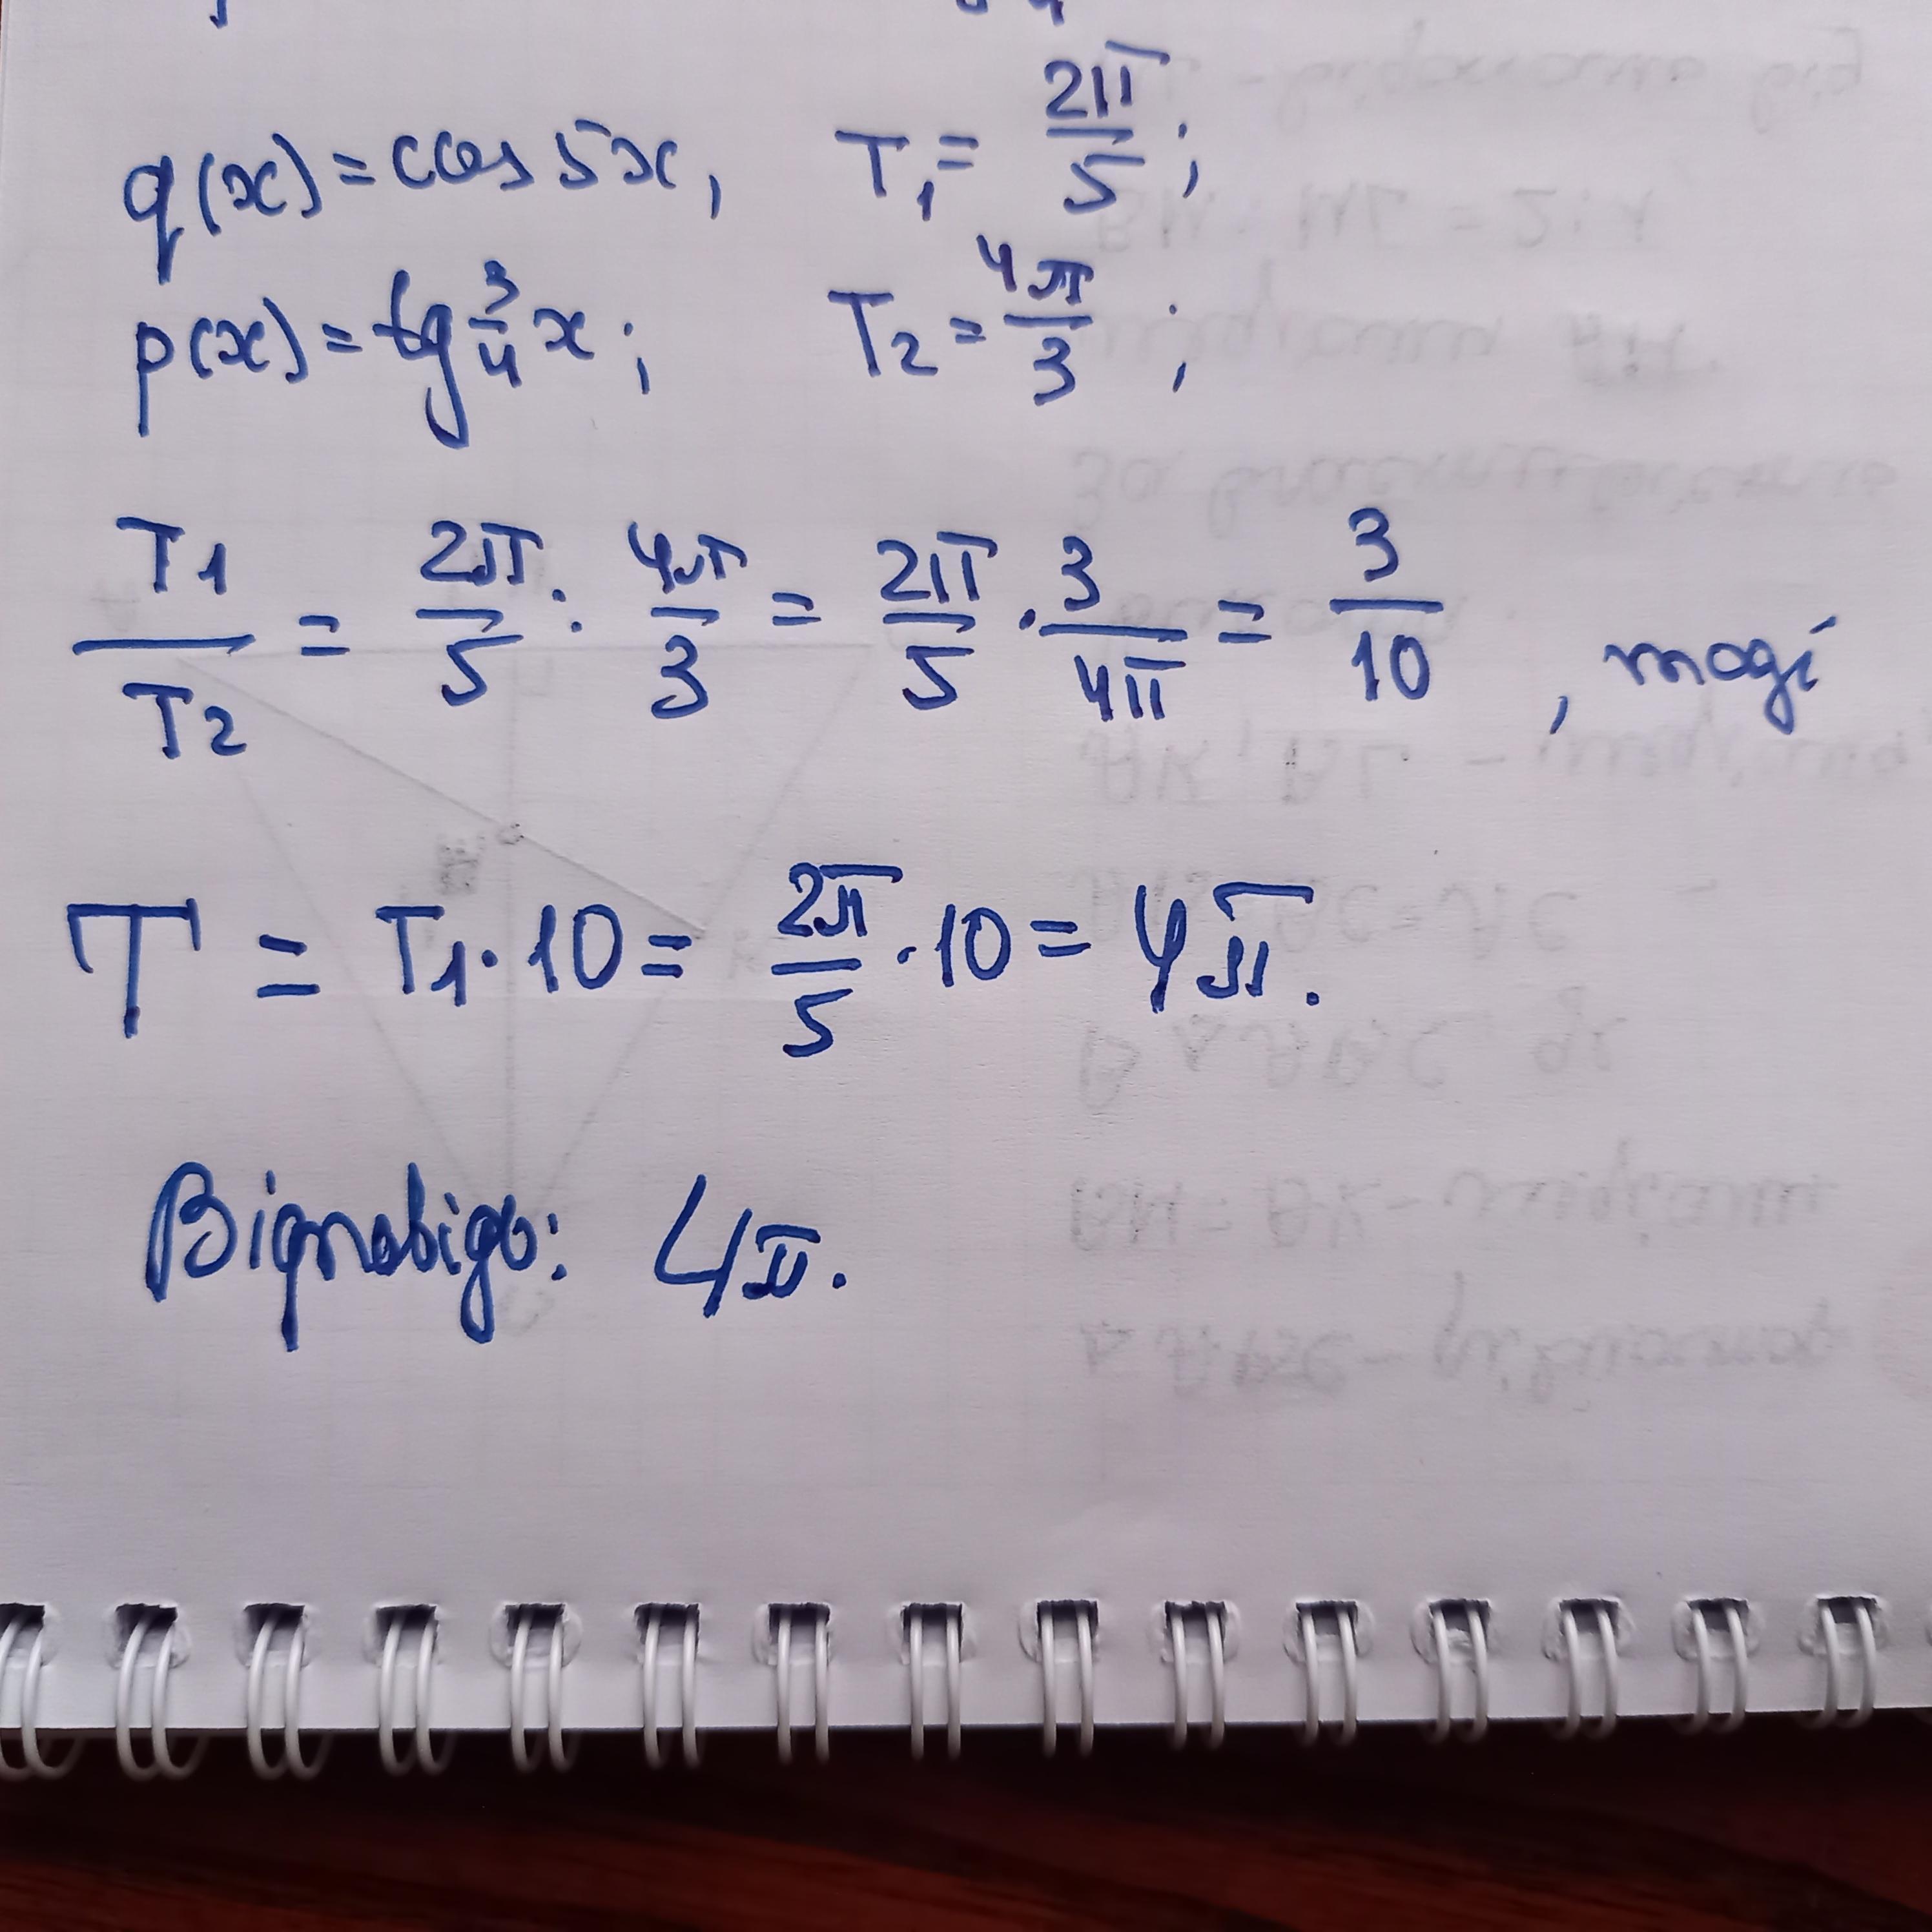 q(x) = cos 5x, T₁ = 2π/5 ;
p(x) = tg 3/4 x ; T₂ = 4π/3 ;
T₁/T₂ = 2π/5 : 4π/3 = 2π/5 · 3/4π = 3/10 , тоді
T = T₁ · 10 = 2π/5 · 10 = 4π.
Відповідь: 4π.